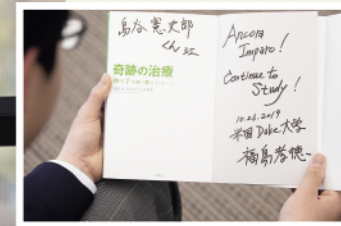 島谷 憲史郎
くん江
奇跡の治療
Ancora
Imparo!
Continue to
Study!
10.26.2019
米国 Duke 大学
福島孝徳